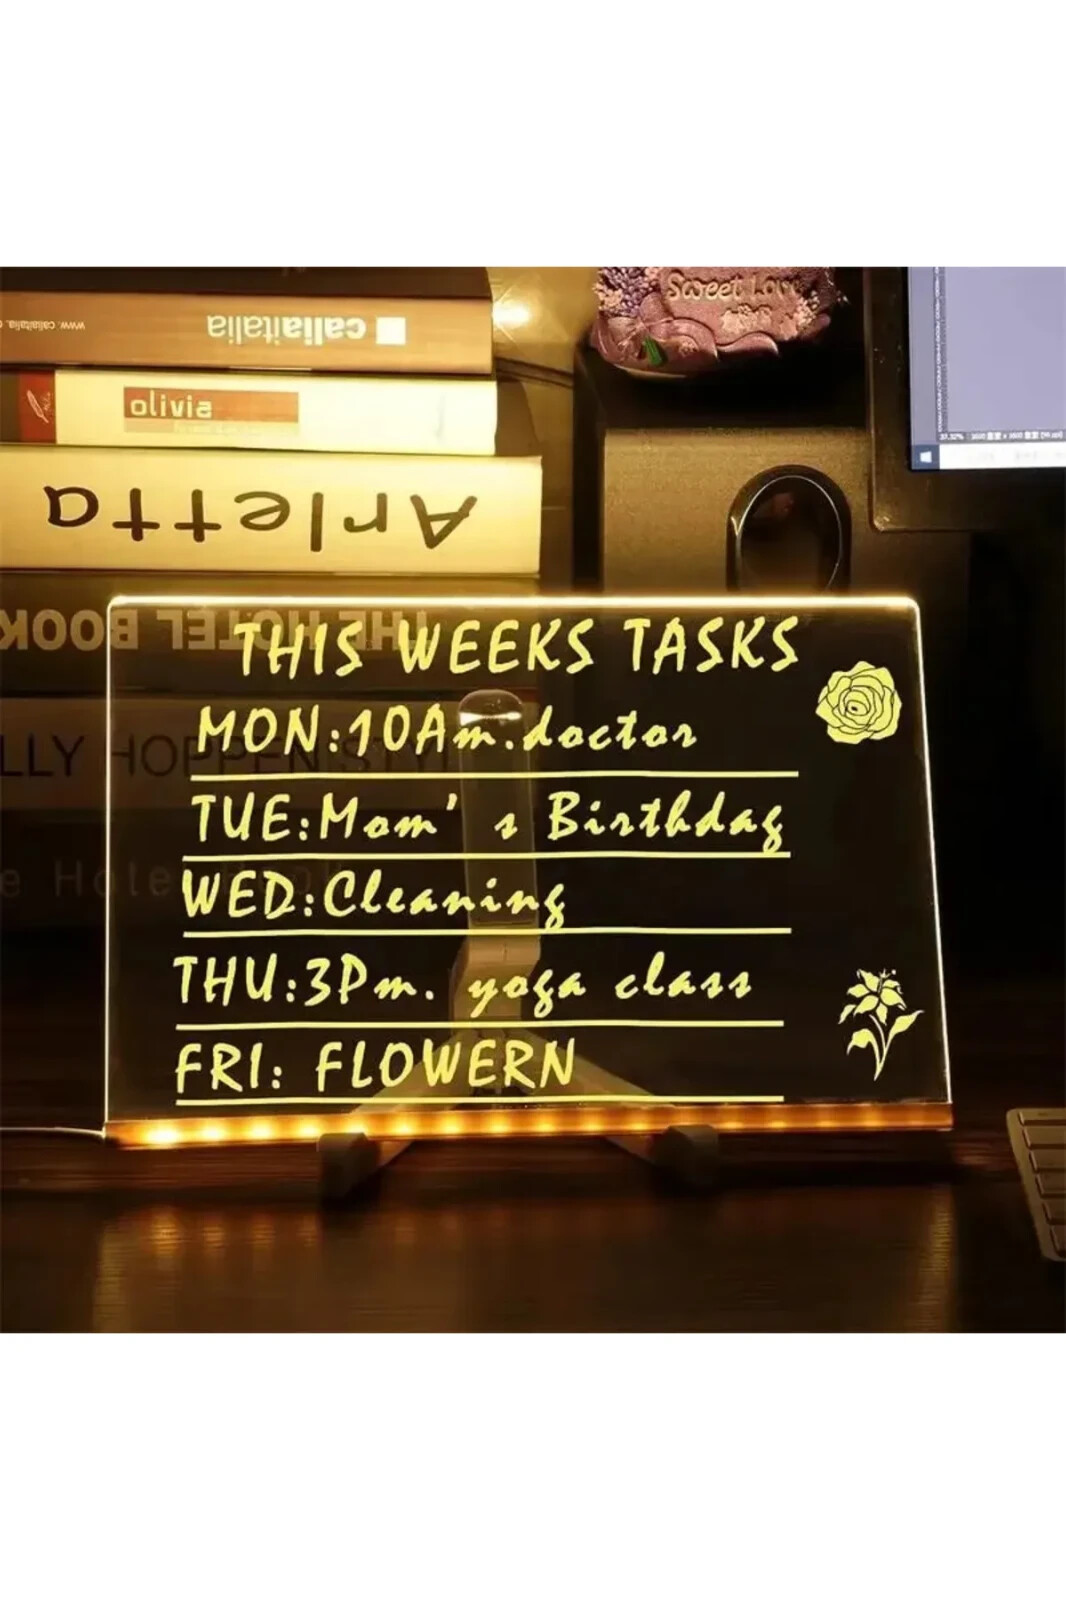 www.caliaitalia.
caliaitalia
olivia
Arletta
THE HOTEL BOOK
Sweet Love
THIS WEEKS TASKS
MON:10Am.doctor
TUE:Mom's Birthday
WED:Cleaning
THU:3Pm. yoga class
FRI: FLOWERN